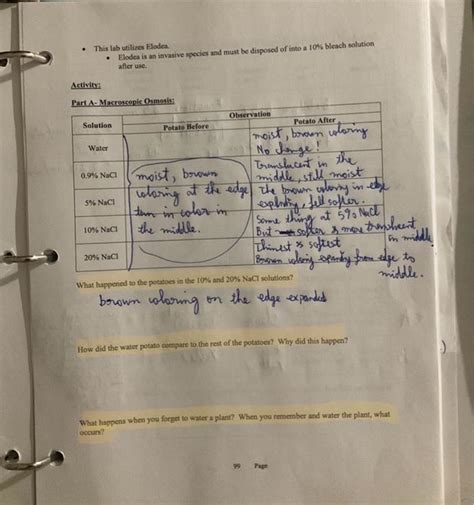 • This lab utilizes Elodea.
• Elodea is an invasive species and must be disposed of into a 10% bleach solution
after use.
Activity:
Part A- Macroscopic Osmosis:
Observation
Solution Potato Before Potato After
Water
moist, brown coloring
No change!
0.9% NaCl
Translucent in the
middle, still moist
moist, brown
coloring at the edge
tan in color in
the middle.
5% NaCl
The brown coloring in edge
expanding, fell softer.
10% NaCl
Same thing at 5% NaCl
But softer & more translucent
in middle
20% NaCl
Thinest & softest
Brown coloring expanding from edge to
middle.
What happened to the potatoes in the 10% and 20% NaCl solutions?
brown coloring on the edge expanded
How did the water potato compare to the rest of the potatoes? Why did this happen?
What happens when you forget to water a plant? When you remember and water the plant, what
occurs?
99 Page